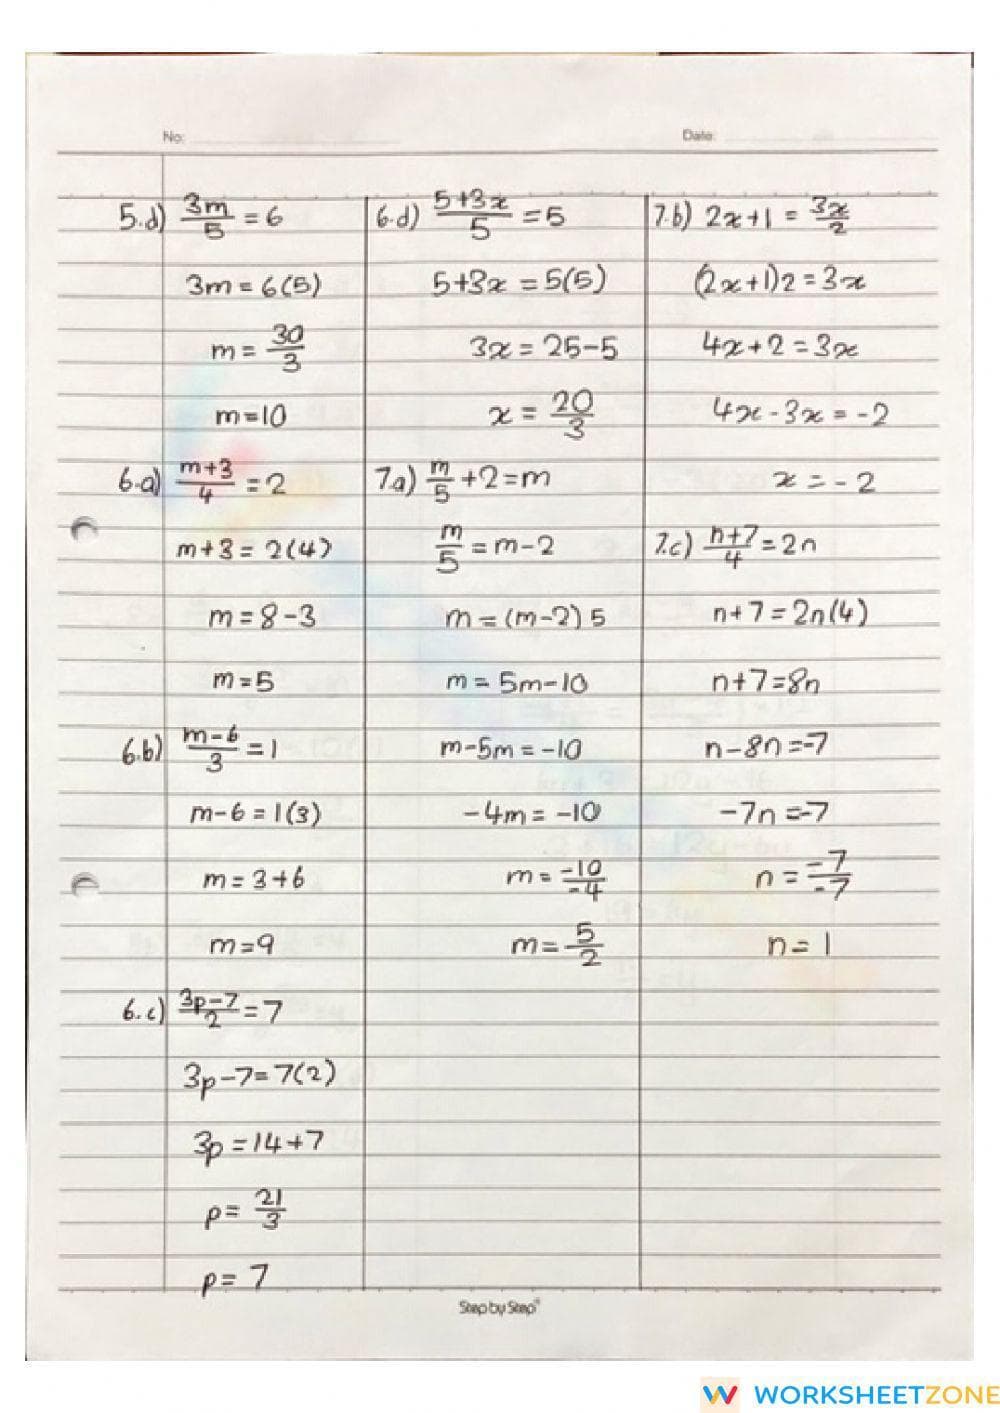 No:
Date:
5.d) 3m/5 = 6
3m = 6(5)
m = 30/3
m=10
6.a) m+3/4 = 2
m+3 = 2(4)
m = 8-3
m=5
6.b) m-6/3 = 1
m-6 = 1(3)
m = 3+6
m=9
6.c) 3p-7/2 = 7
3p-7 = 7(2)
3p = 14+7
p = 21/3
p = 7
6.d) 5+3x/5 = 5
5+3x = 5(5)
3x = 25-5
x = 20/3
7a) m/5 + 2 = m
m/5 = m-2
m = (m-2) 5
m = 5m-10
m-5m = -10
-4m = -10
m = -10/-4
m = 5/2
7.b) 2x+1 = 3x/2
(2x+1)2 = 3x
4x+2 = 3x
4x-3x = -2
x = -2
7.c) n+7/4 = 2n
n+7 = 2n(4)
n+7=8n
n-8n=-7
-7n=-7
n = -7/-7
n = 1
Step by Step
WORKSHEETZONE